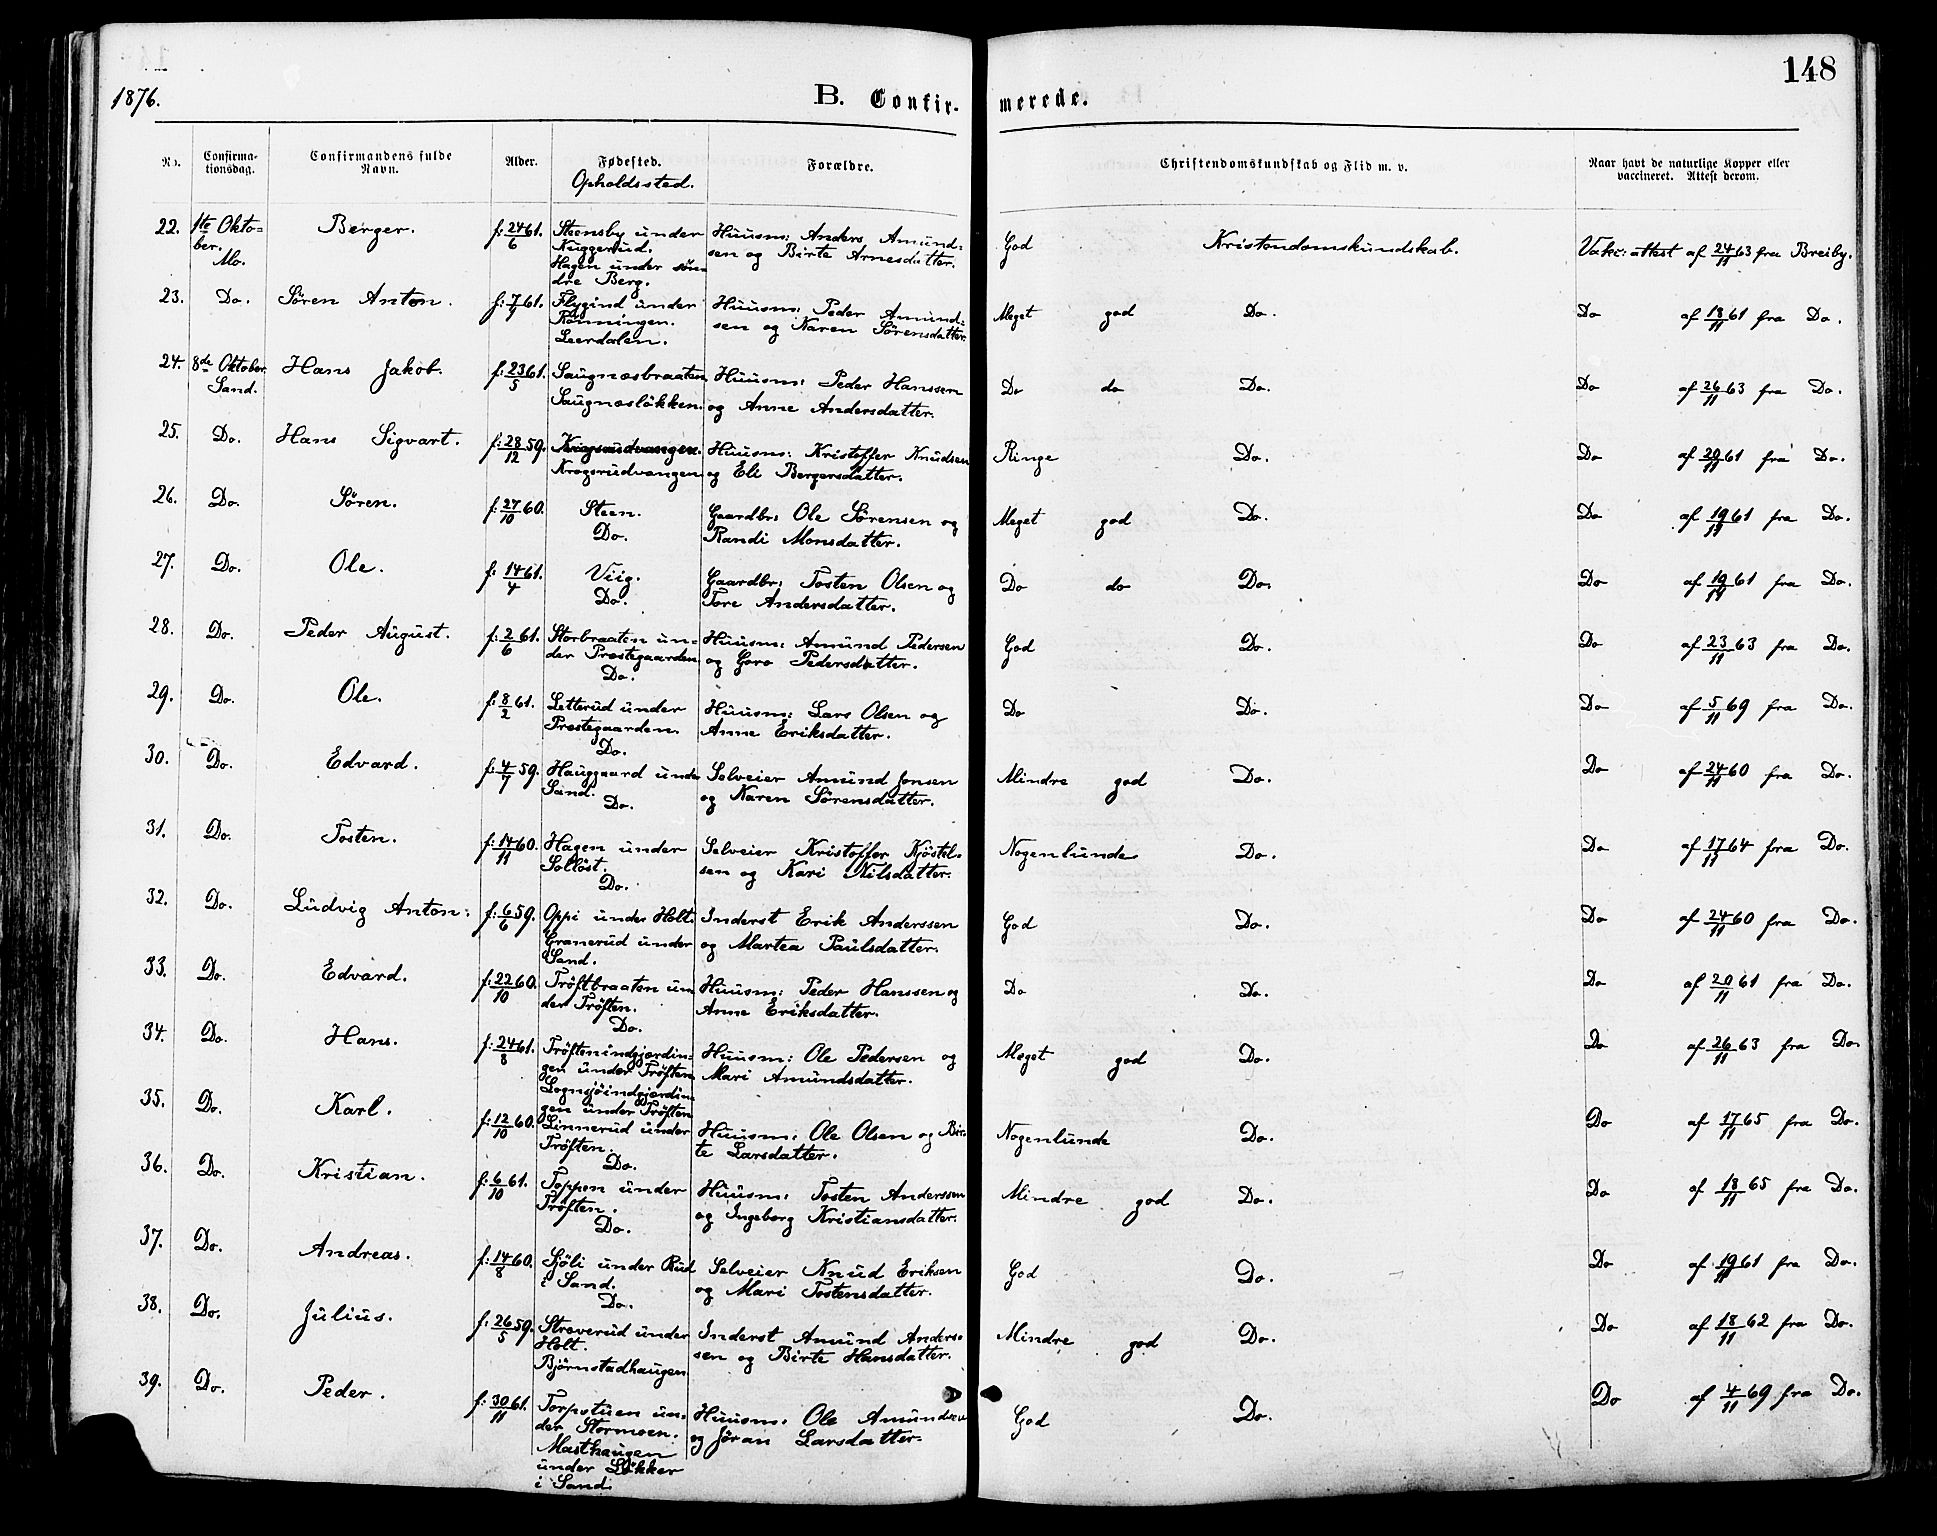 1876.
B. Confirmerede.
148
No.
Confirmationsdag.
Confirmandens fulde Navn.
Alder.
Fødested.
Opholdssted.
Forældre.
Christendomskundskab og Flid m. v.
Naar havt de naturlige Kopper eller vaccineret. Attest derom.
22. 1ste Oktober. Mo. Berger. f: 24/6 61. Steensby under Nuggerud. Hagen under søndre Berg. Huusm: Anders Amundsen og Birte Arnesdatter. God Kristendomskundskab. Vakc: attest af 24/11 63 fra Breiby.
23. Do. Søren Anton. f: 7/7 61. Flygind under Rønningen. Leerdalen. Huusm: Peder Amundsen og Karen Sørensdatter. Meget god Do. Do af 18/11 61 fra Do.
24. 8de Oktober Sand. Hans Jakob. f: 23/5 61. Saugnæsbraaten Saugnæsløkken. Huusm: Peder Hanssen og Anne Andersdatter. Do do Do. Do af 26/11 63 fra Do.
25. Do. Hans Sigvart. f: 28/12 59. Krogsrudvangen. Krogsrudvangen Huusm: Kristoffer Knudsen og Eli Bergersdatter. Ringe Do. Do af 20/11 61 fra Do.
26. Do. Søren. f: 27/10 60. Steen. Do. Gaardbr: Ole Sørensen og Randi Monsdatter. Meget god Do. Do af 19/11 61 fra Do.
27. Do. Ole. f: 14/4 61. Viig. Do. Gaardbr: Tosten Olsen og Tore Andersdatter. Do do Do. Do af 19/11 61 fra Do.
28. Do. Peder August. f: 2/6 61. Storbraaten under Præstegaarden Do. Huusm: Amund Pedersen og Goro Pedersdatter. God Do. Do af 23/11 63 fra Do.
29. Do. Ole. f: 8/2 61. Letterud under Præstegaarden. Do. Huusm: Lars Olsen og Anne Eriksdatter. Do Do. Do af 5/11 69 fra Do.
30. Do. Edvard. f: 4/7 59. Hauggaard under Sand. Do. Selveier Amund Jonsen og Karen Sørensdatter. Mindre god Do. Do af 24/11 60 fra Do.
31. Do. Tosten. f: 14/11 60. Hagen under Solløst. Do. Selveier Kristoffer Kjøstelsen og Kari Nilsdatter. Nogenlunde Do. Do af 17/11 64 fra Do.
32. Do. Ludvig Anton: f: 6/6 59. Oppi under Holt. Granerud under Sand. Inderst Erik Anderssen og Martea Paulsdatter. God Do. Do af 24/11 60 fra Do.
33. Do. Edvard. f: 22/10 60. Trøftbraaten under Trøften. Do. Huusm: Peder Hanssen og Anne Eriksdatter. Do Do. Do af 20/11 61 fra Do.
34. Do. Hans. f: 24/8 61. Trøftenindgjærdingen under Trøften Lognsjøindgjærdingen under Trøften Huusm: Ole Pedersen og Mari Amundsdatter. Meget god Do. Do af 26/11 63 fra Do.
35. Do. Karl. f: 12/10 60. Linnerud under Trøften. Do. Huusm: Ole Olsen og Birte Larsdatter. Nogenlunde Do. Do af 17/11 65 fra Do.
36. Do. Kristian. f: 6/10 61. Toppen under Trøften. Do. Huusm: Tosten Anderssen og Ingeborg Kristiansdatter. Mindre god Do. Do af 18/11 65 fra Do.
37. Do. Andreas. f: 14/8 60. Sjøli under Rud i Sand. Do. Selveier Knud Eriksen og Mari Tostensdatter. God Do. Do af 19/11 61 fra Do.
38. Do. Julius. f: 26/5 59. Streverud under Holt. Bjørnstadhaugen Inderst Amund Anderssen og Birte Hansdatter. Mindre god Do. Do af 18/11 62 fra Do.
39. Do. Peder. f: 30/11 61. Torpstuen under Stormoen. Masthaugen under Løkker i Sand. Huusm: Ole Amundsen og Jøran Larsdatter. God Do. Do af 4/11 69 fra Do.